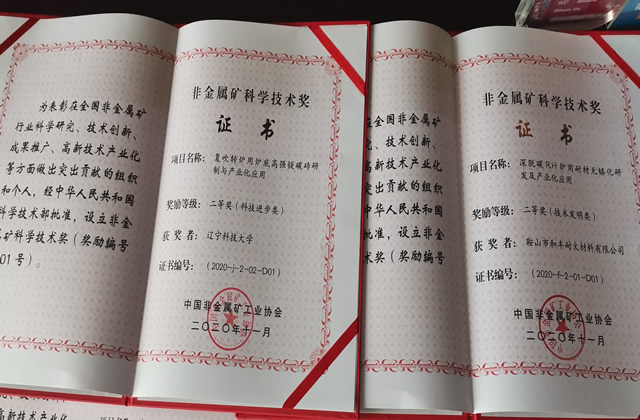 为表彰在全国非金属矿
行业科学研究、技术创新、
成果推广、高新技术产业化
等方面做出突出贡献的组织
和个人，经中华人民共和国
科学技术部批准，设立非金
矿科学技术奖（奖励编号
01号）。
非金属矿科学技术奖
证书
项目名称：复吹转炉用炉底高强镁碳砖研
制与产业化应用
奖励等级：二等奖（科技进步类）
获奖者：辽宁科技大学
证书编号：（2020-j-2-02-D01）
中国非金属矿工业协会
二〇二〇年十一月
在全国非金属矿
究、技术创新、
高新技术产业化
突出贡献的组织
中华人民共和国
批准，设立非金
术奖（奖励编号
非金属矿科学技术奖
证书
项目名称：深脱碳RH炉用耐材无铬化研
发及产业化应用
奖励等级：二等奖（技术发明类）
获奖者：鞍山市和丰耐火材料有限公司
证书编号：（2020-f-2-01-D01）
中国非金属矿工业协会
二〇二〇年十一月